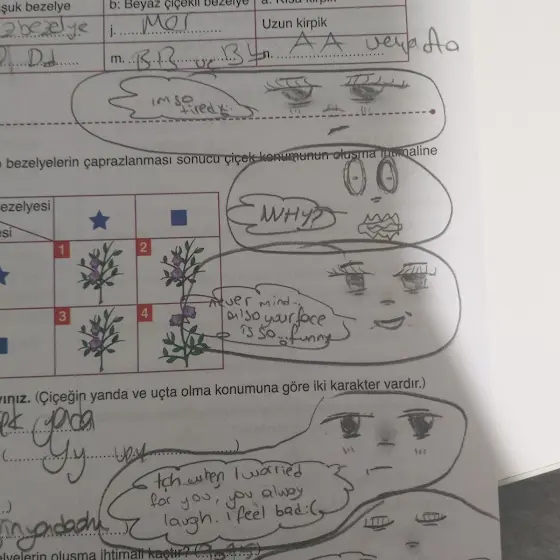 şuk bezelye
b: Beyaz çiçekli bezelye
a: Kısa kirpik
bezelye
j. Mor
Uzun kirpik
Dd
m. BB ve Bb
n. AA veya Aa
im so
tired..
bezelyelerin çaprazlanması sonucu çiçek konumunun oluşma ihtimaline
WHY?
ezelyesi
esi
1
2
3
4
never mind..
also your face
is so.. funny
ınız. (Çiçeğin yanda ve uçta olma konumuna göre iki karakter vardır.)
yada
Yy
tch when I worried
for you, you alway
laugh. i feel bad:(
elyelerin oluşma ihtimali kaçtır?